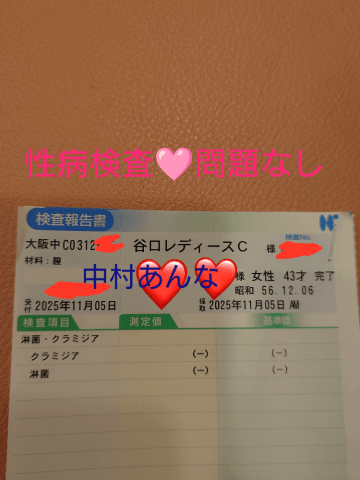 性病検査🩷問題なし
検査報告書
大阪中C0312 谷口レディースC 様 検査No.
材料：膣
中村あんな 様 女性 43才 完了
昭和 56.12.06
受付 2025年11月05日 採取 2025年11月05日 AM
検査項目 測定値 基準値
淋菌・クラミジア
クラミジア (−) (−)
淋菌 (−) (−)